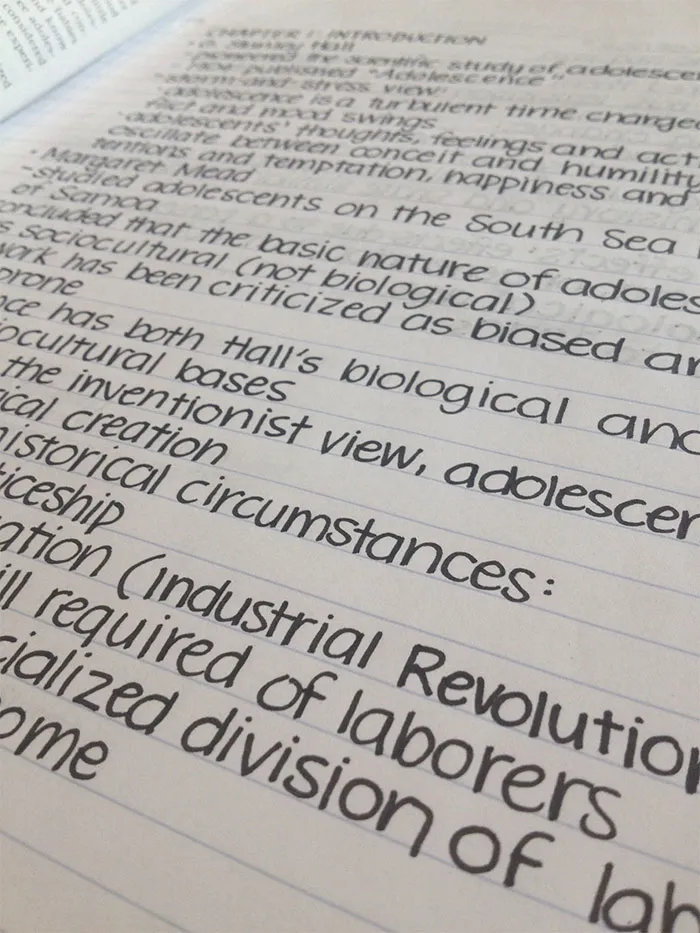 CHAPTER 1: INTRODUCTION
- G. Stanley Hall
- pioneered the scientific study of adolesce
- first published "Adolescence"
- storm-and-stress view:
- adolescence is a turbulent time charge
flict and mood swings
- adolescents' thoughts, feelings and act
oscillate between conceit and humility
tentions and temptation, happiness and
- Margaret Mead
- studied adolescents on the South Sea I
of Samoa
oncluded that the basic nature of adoles
s sociocultural (not biological)
work has been criticized as biased an
prone
nce has both Hall's biological and
ocultural bases
the inventionist view, adolescen
ical creation
historical circumstances:
ticeship
ation (Industrial Revolution
ill required of laborers
cialized division of lab
ome